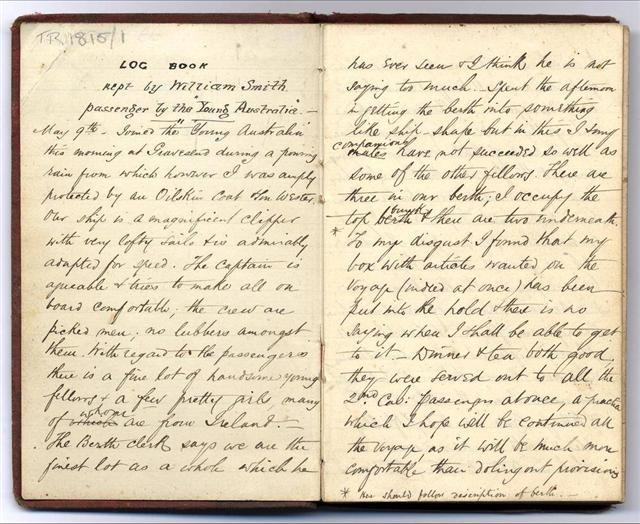 T.R. 1815/1
LOG BOOK
kept by William Smith
passenger by the "Young Australia".—
May 9th - Joined the "Young Australia"
this morning at Gravesend during a pouring
rain from which however I was amply
protected by an Oilskin Coat & Sou Wester
Our ship is a magnificent clipper
with very lofty sails & is admirably
adapted for speed. The Captain is
agreeable & tries to make all on
board comfortable; the crew are
picked men; no lubbers amongst
them. With regard to the passengers
there is a fine lot of handsome young
fellows & a few pretty girls many
of whom are from Ireland. —
The Berth clerk says we are the
finest lot as a whole which he
has ever seen & I think he is not
saying too much. Spent the afternoon
in getting the berth into something
like ship-shape but in this I & my
companions mates have not succeeded so well as
some of the other fellows. There are
three in our berth; I occupy the
top berth bunk & there are two underneath.
* To my disgust I found that my
box with articles wanted on the
voyage (indeed at once) has been
put into the hold & there is no
saying when I shall be able to get
to it — Dinner & tea both good,
they were served out to all the
2nd Cab: passengers at once, a practice
which I hope will be continued all
the voyage as it will be much more
comfortable than doling out provisions
* Here should follow description of berth. —